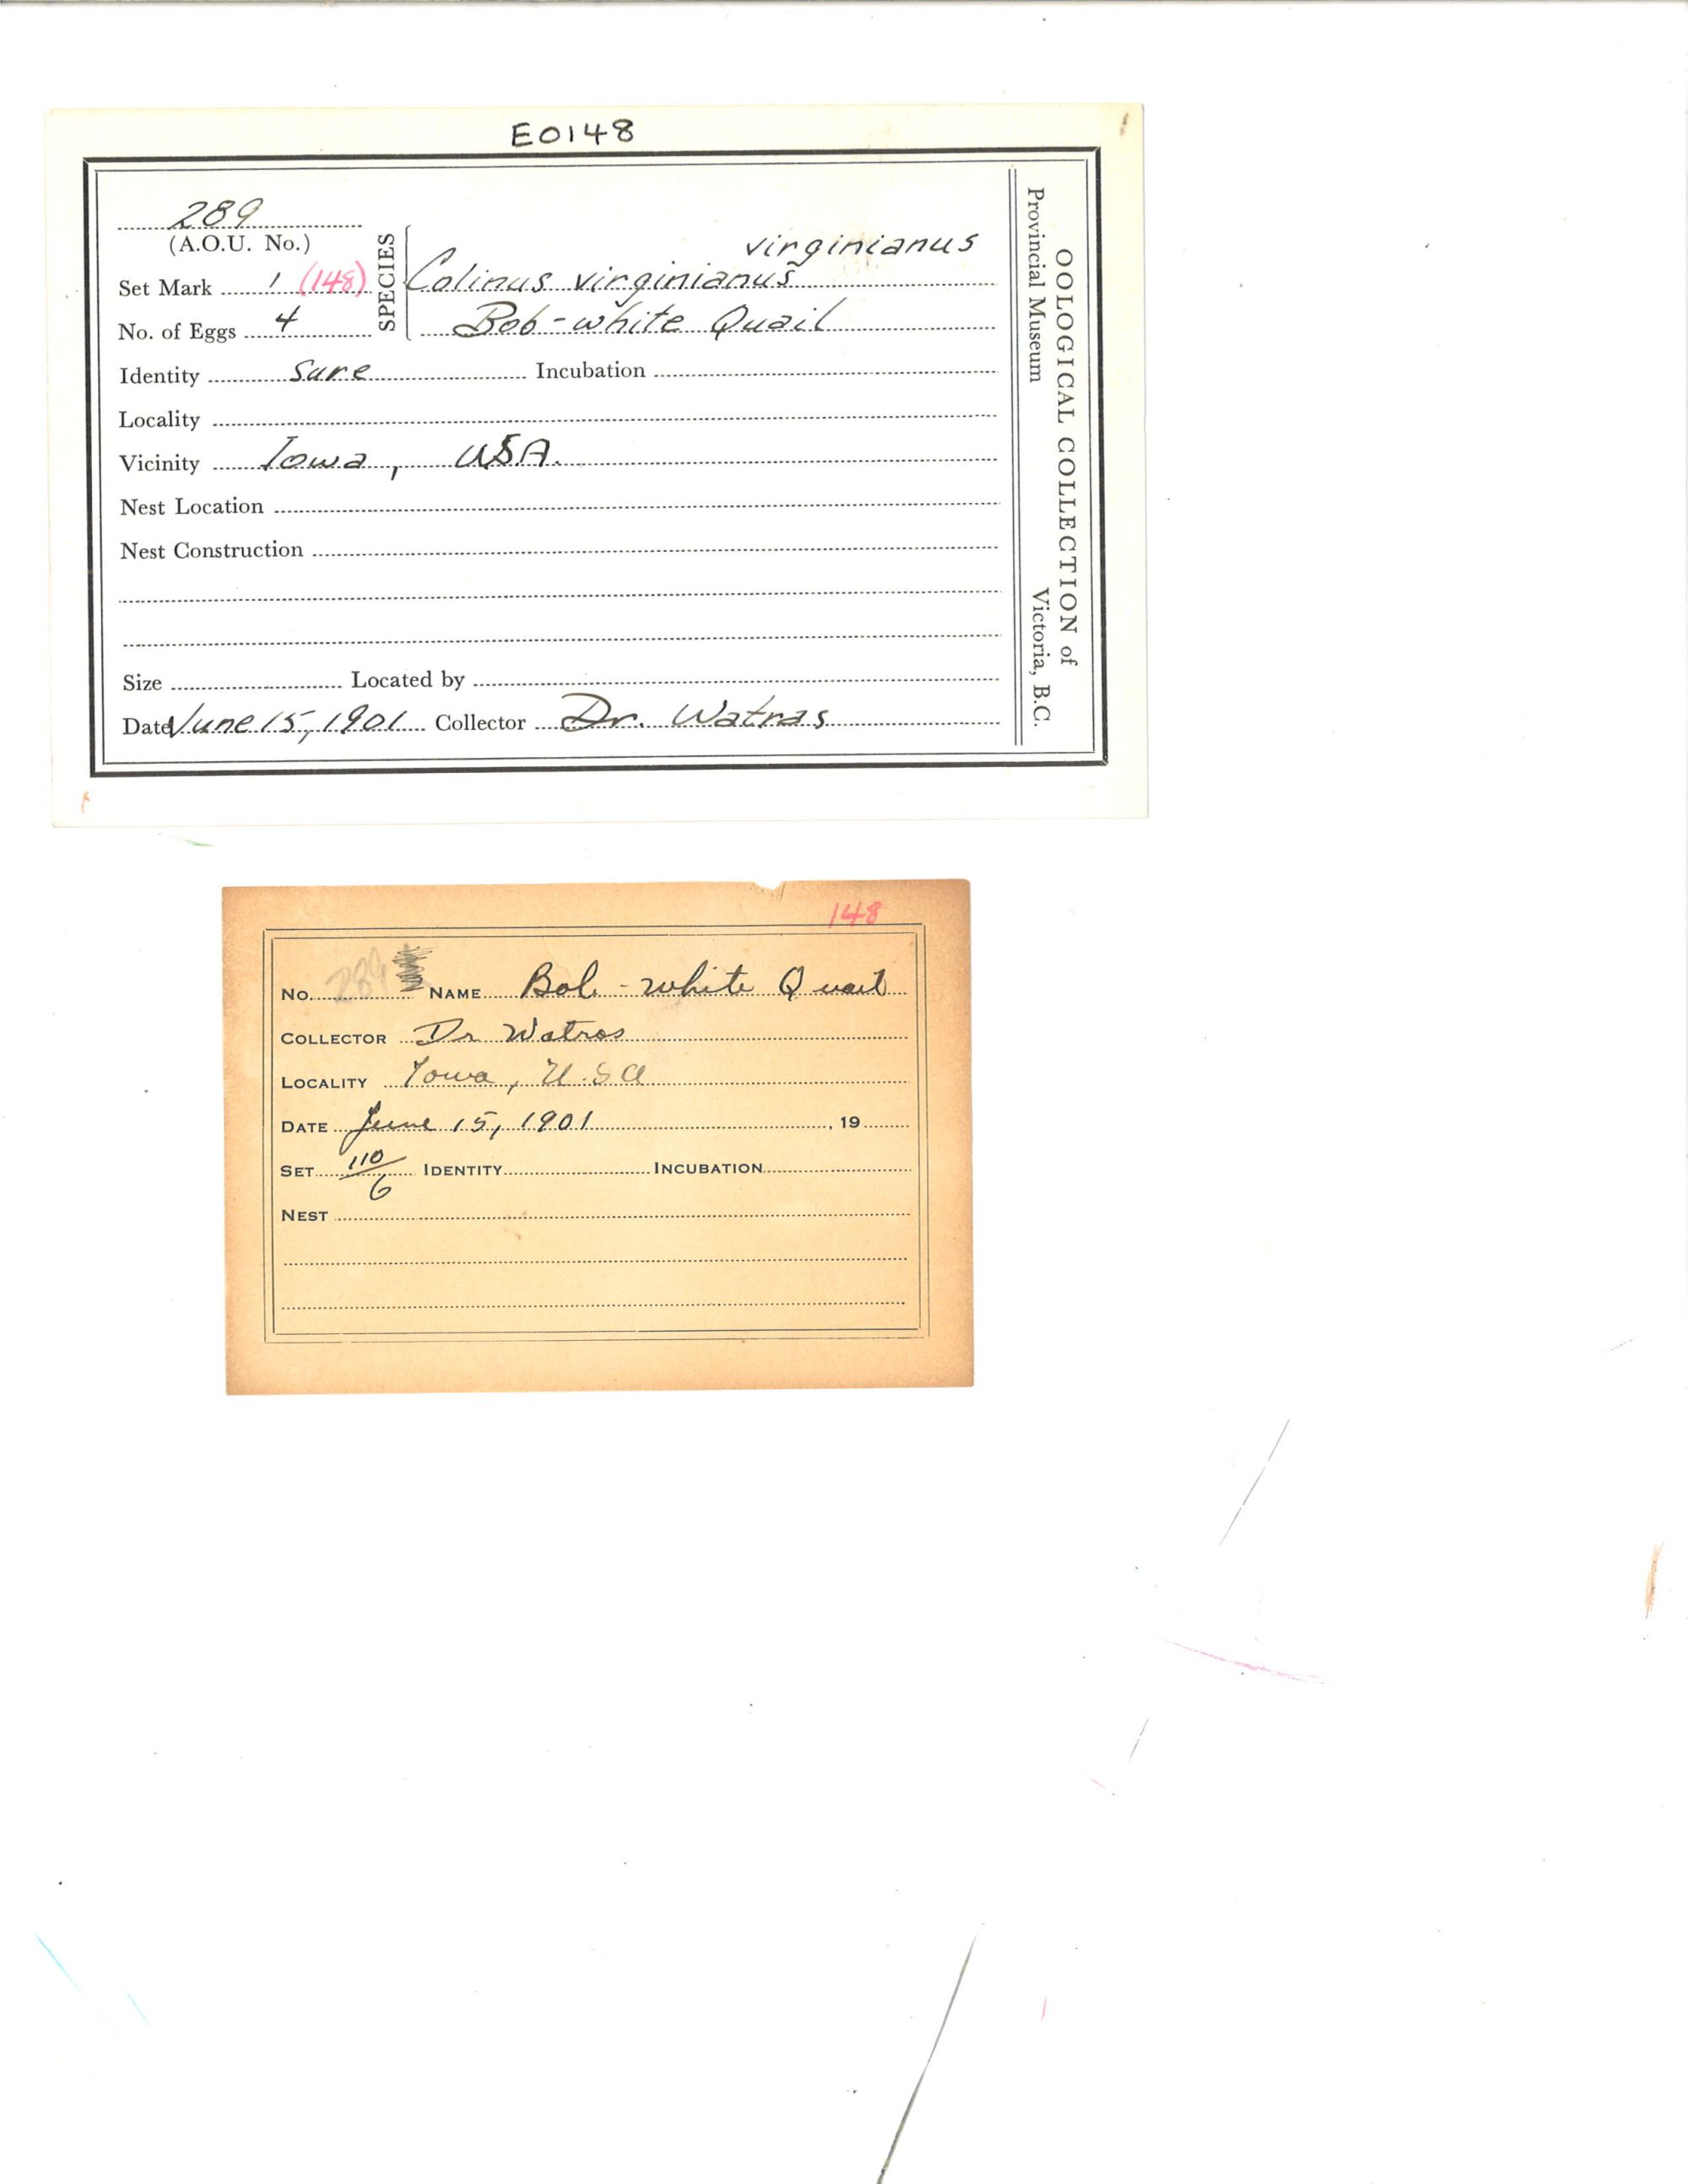 E0148
289
(A.O.U. No.)
Set Mark 1 (148)
No. of Eggs 4
SPECIES
virginianus
Colinus virginianus
Bob-white Quail
Identity Sure Incubation
Locality
Vicinity Iowa, USA.
Nest Location
Nest Construction
Size Located by
Date June 15, 1901 Collector Dr. Watras
OOLOGICAL COLLECTION of
Provincial Museum Victoria, B.C.
148
No. 289 NAME Bob-white Quail
COLLECTOR Dr Watros
LOCALITY Iowa, U.S.A
DATE June 15, 1901 , 19
SET 110/6 IDENTITY INCUBATION
NEST